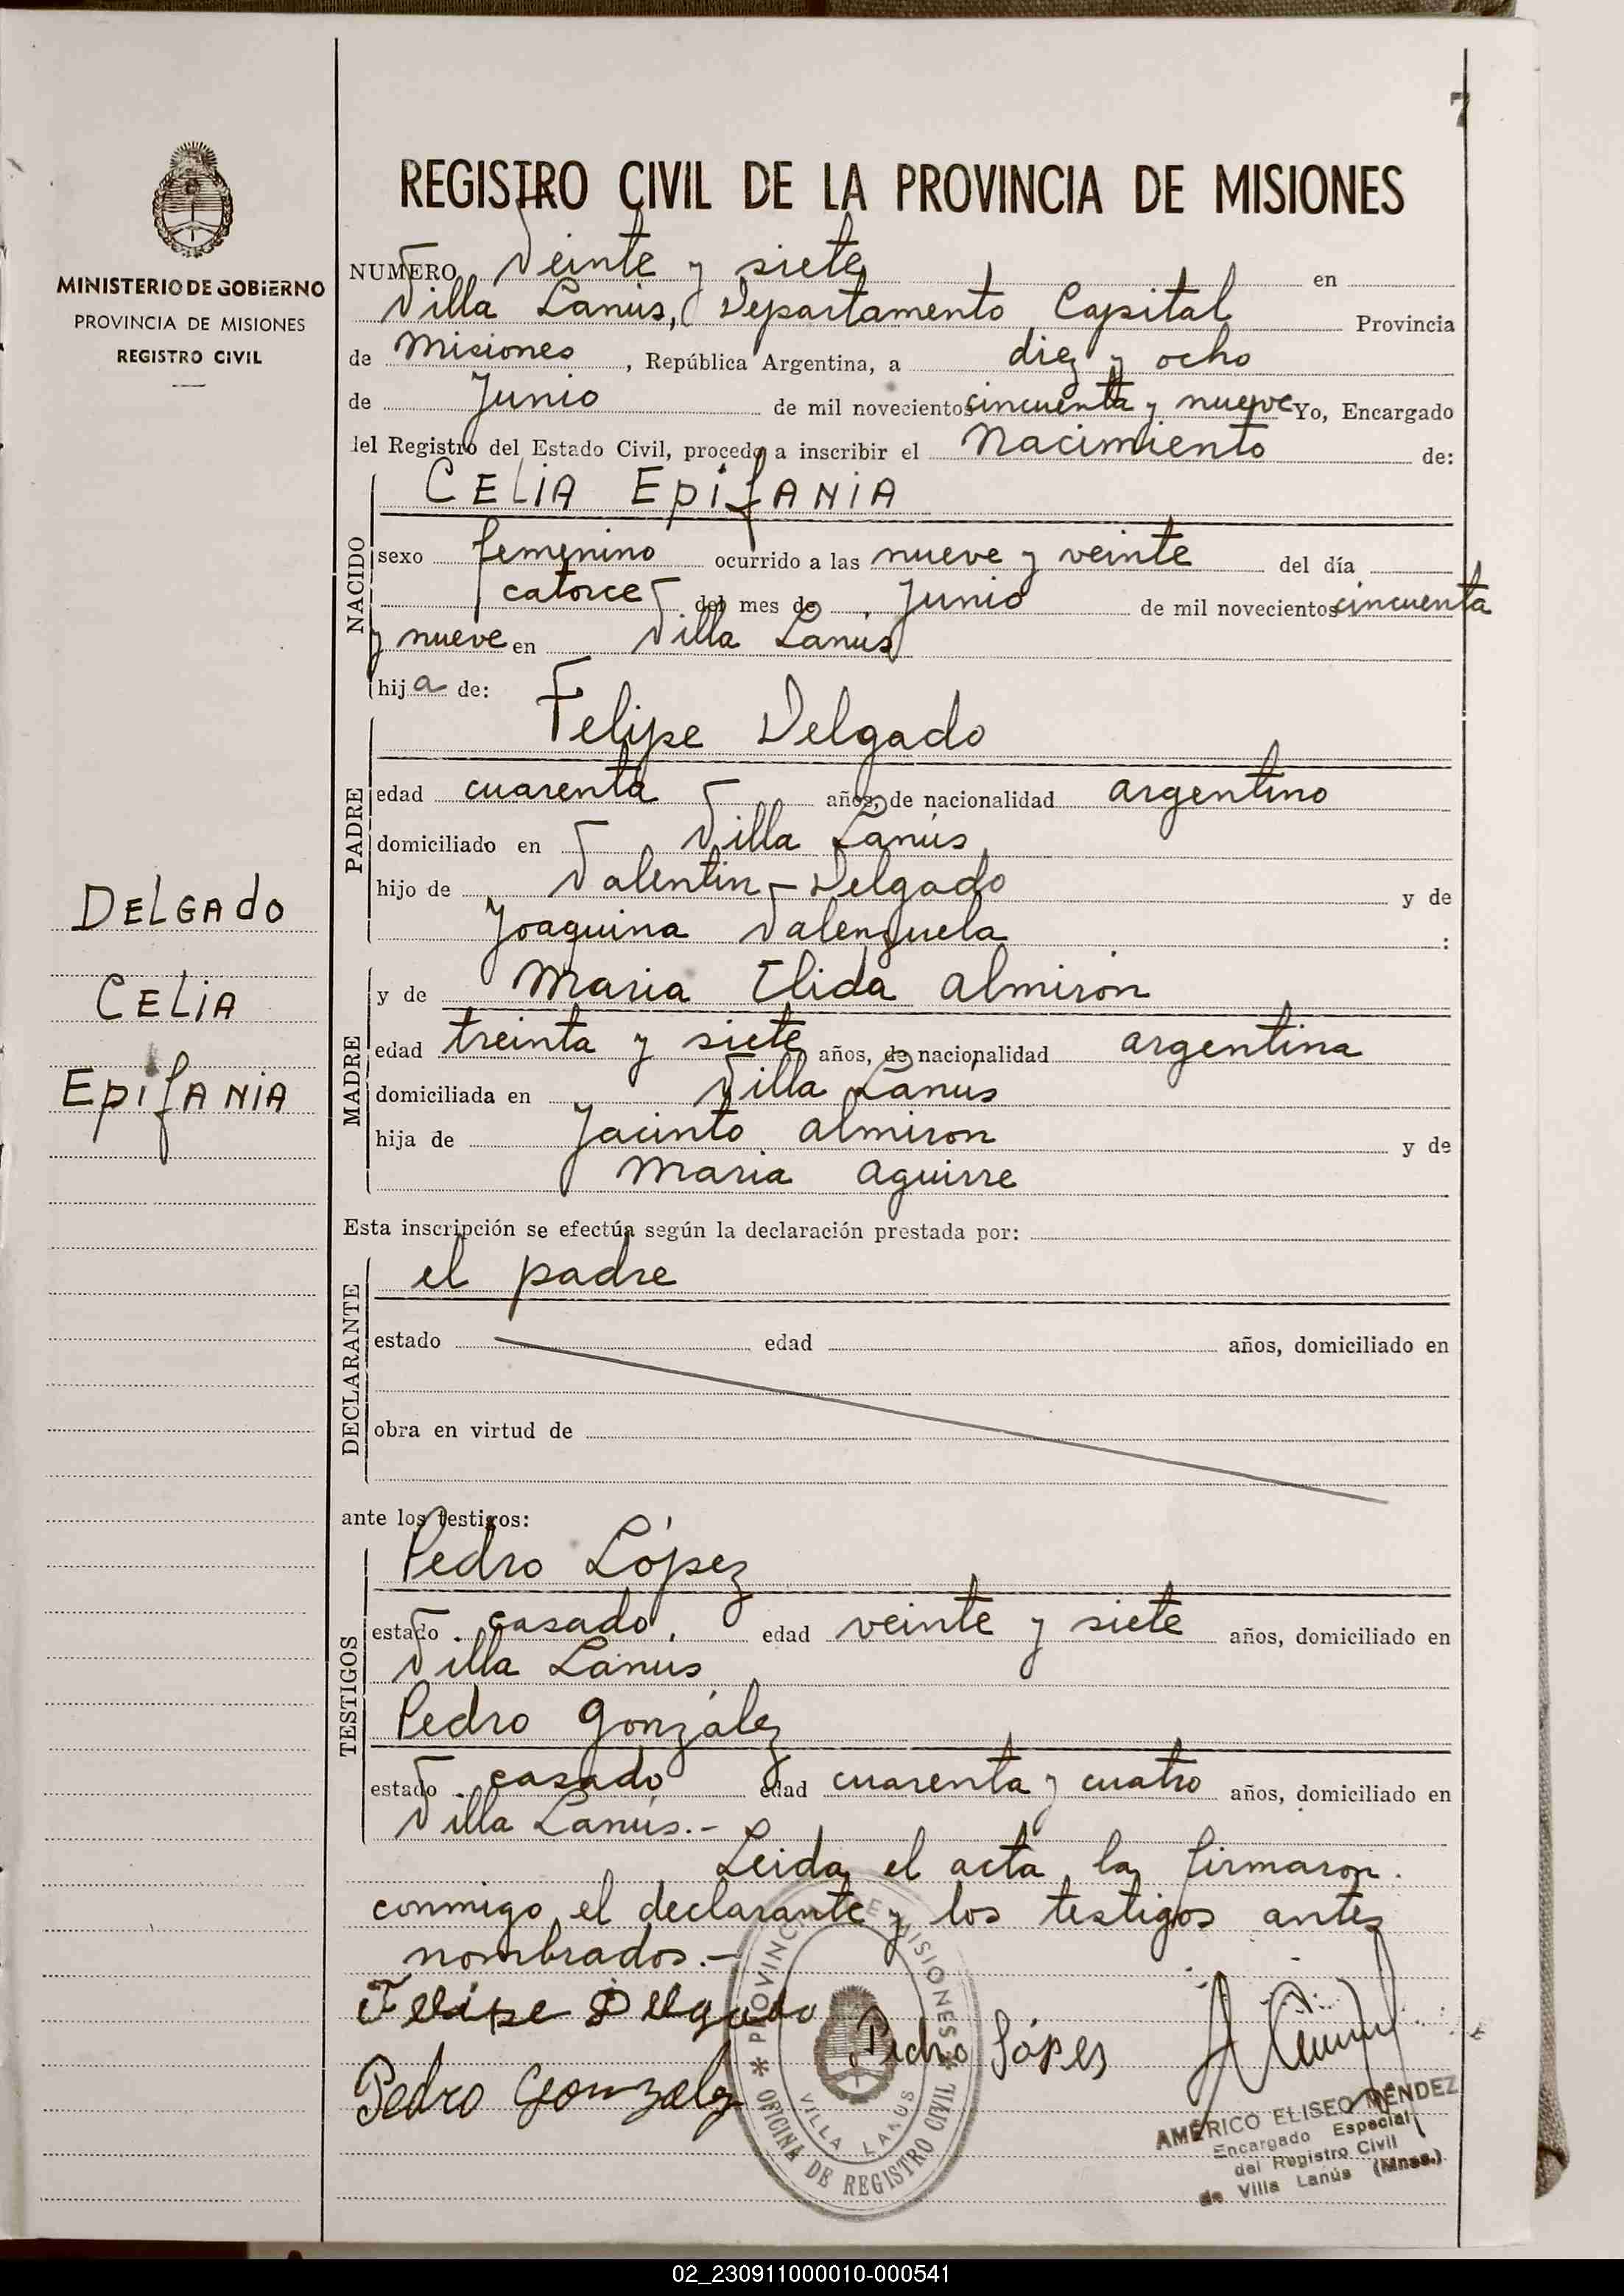 7
MINISTERIO DE GOBIERNO
PROVINCIA DE MISIONES
REGISTRO CIVIL
DELGADO
CELIA
EPIFANIA
REGISTRO CIVIL DE LA PROVINCIA DE MISIONES
NUMERO Veinte y siete en
Villa Lanús, Departamento Capital Provincia
de Misiones, República Argentina, a diez y ocho
de Junio de mil novecientos cincuenta y nueve Yo, Encargado
del Registro del Estado Civil, procedo a inscribir el Nacimiento de:
NACIDO
CELIA EPIFANIA
sexo femenino ocurrido a las nueve y veinte del día
catorce del mes de Junio de mil novecientos cincuenta
y nueve en Villa Lanús
hija de:
PADRE
Felipe Delgado
edad cuarenta años, de nacionalidad argentino
domiciliado en Villa Lanús
hijo de Valentin Delgado y de
Joaquina Valenzuela :
MADRE
y de Maria Elida Almirón
edad treinta y siete años, de nacionalidad argentina
domiciliada en Villa Lanus
hija de Jacinto Almiron y de
Maria Aguirre
Esta inscripción se efectúa según la declaración prestada por:
DECLARANTE
el padre
estado edad años, domiciliado en
obra en virtud de
ante los testigos:
TESTIGOS
Pedro López
estado casado, edad veinte y siete años, domiciliado en
Villa Lanus
Pedro González
estado casado edad cuarenta y cuatro años, domiciliado en
Villa Lanús.-
Leida el acta la firmaron
conmigo el declarante y los testigos antes
nombrados.-
Felipe Delgado
Pedro Lópes
Pedro Gonzalez
PROVINCIA DE MISIONES
OFICINA DE REGISTRO CIVIL
VILLA LANUS
AMÉRICO ELISEO MÉNDEZ
Encargado Especial
del Registro Civil
de Villa Lanús (Mnes.)
02_230911000010-000541